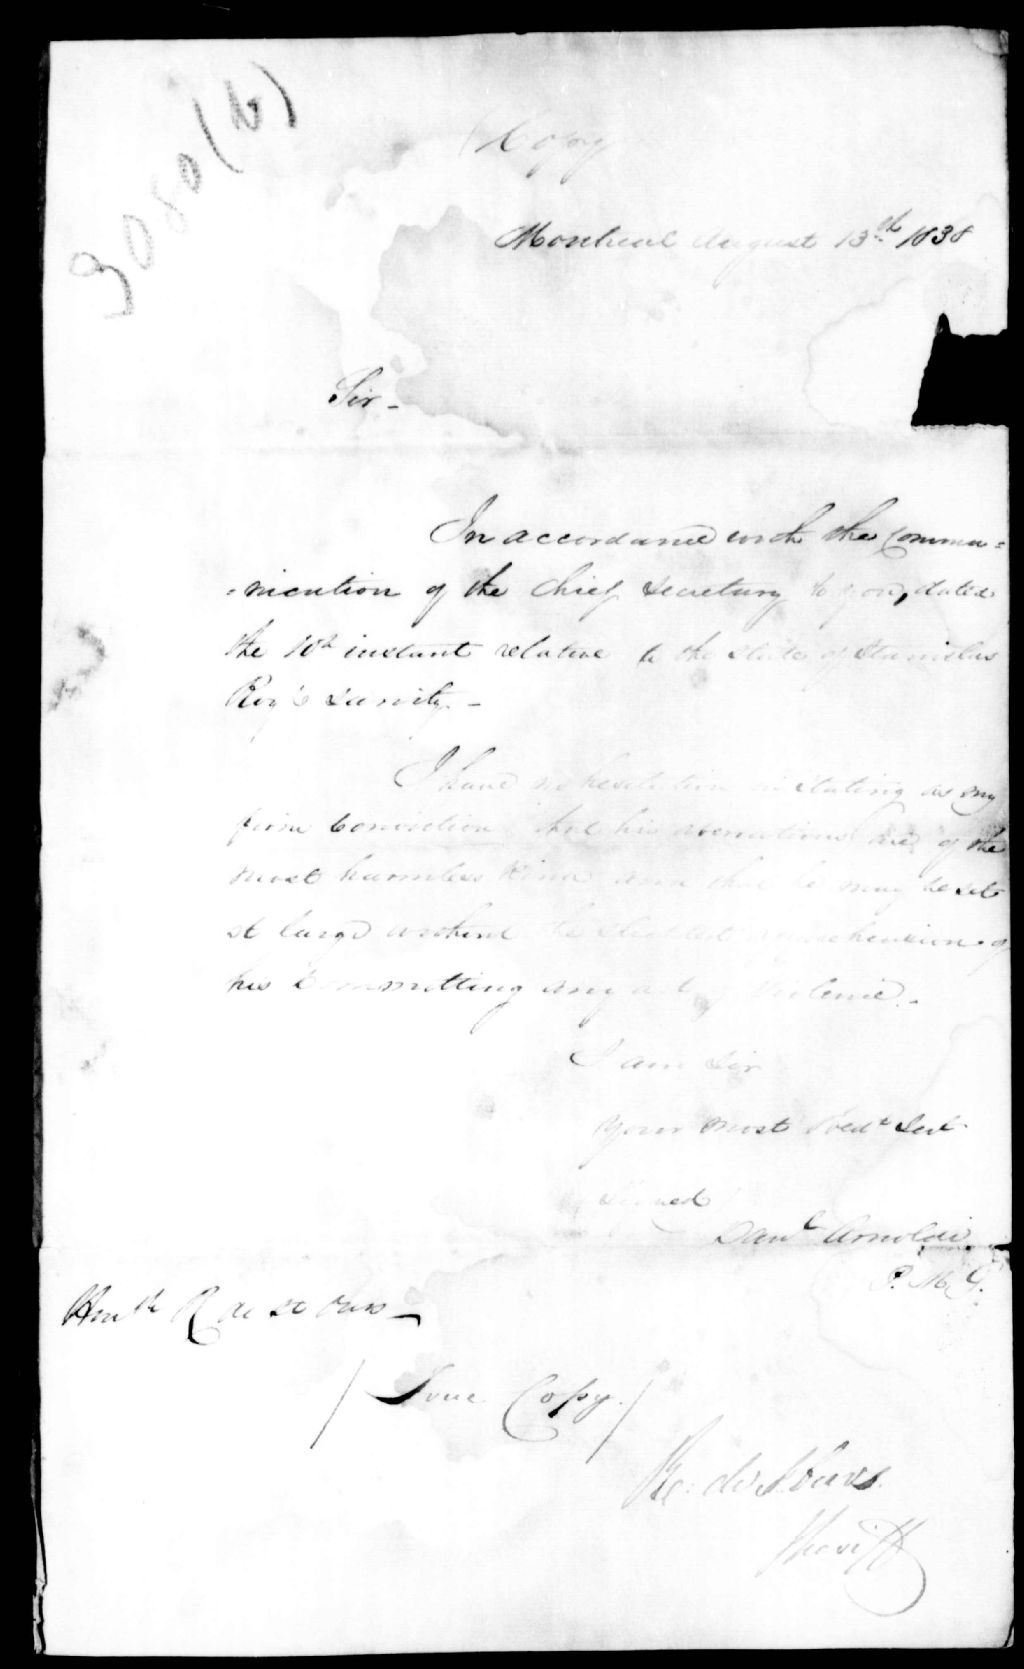 3080 (b)
(Copy
Montreal August 13th 1838
Sir -
In accordance with the Commu=
=nication of the Chief Secretary to you, dated
the 10th instant relative to the state of Stanislas
Roy's sanity. -
I have no hesitation in stating as my
firm Conviction that his aberrations are of the
most harmless Kind and that he may be set
at large without the slightest apprehension of
his Committing any act of Violence. -
I am Sir
Your most Obedt Sert
(Signed)
Danl Arnoldi
P. M. G.
Honble R de St Ours -
/ True Copy. /
Rc. de St Ours
Sheriff